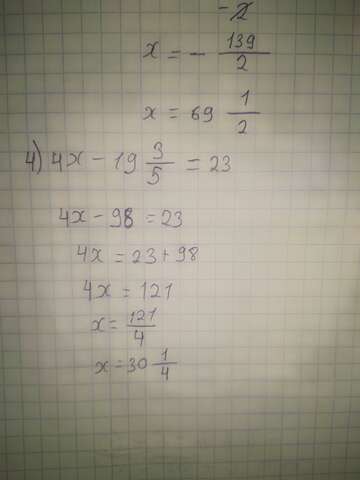 -2
x = - 139/2
x = 69 1/2
4) 4x - 19 3/5 = 23
4x - 98 = 23
4x = 23 + 98
4x = 121
x = 121/4
x = 30 1/4